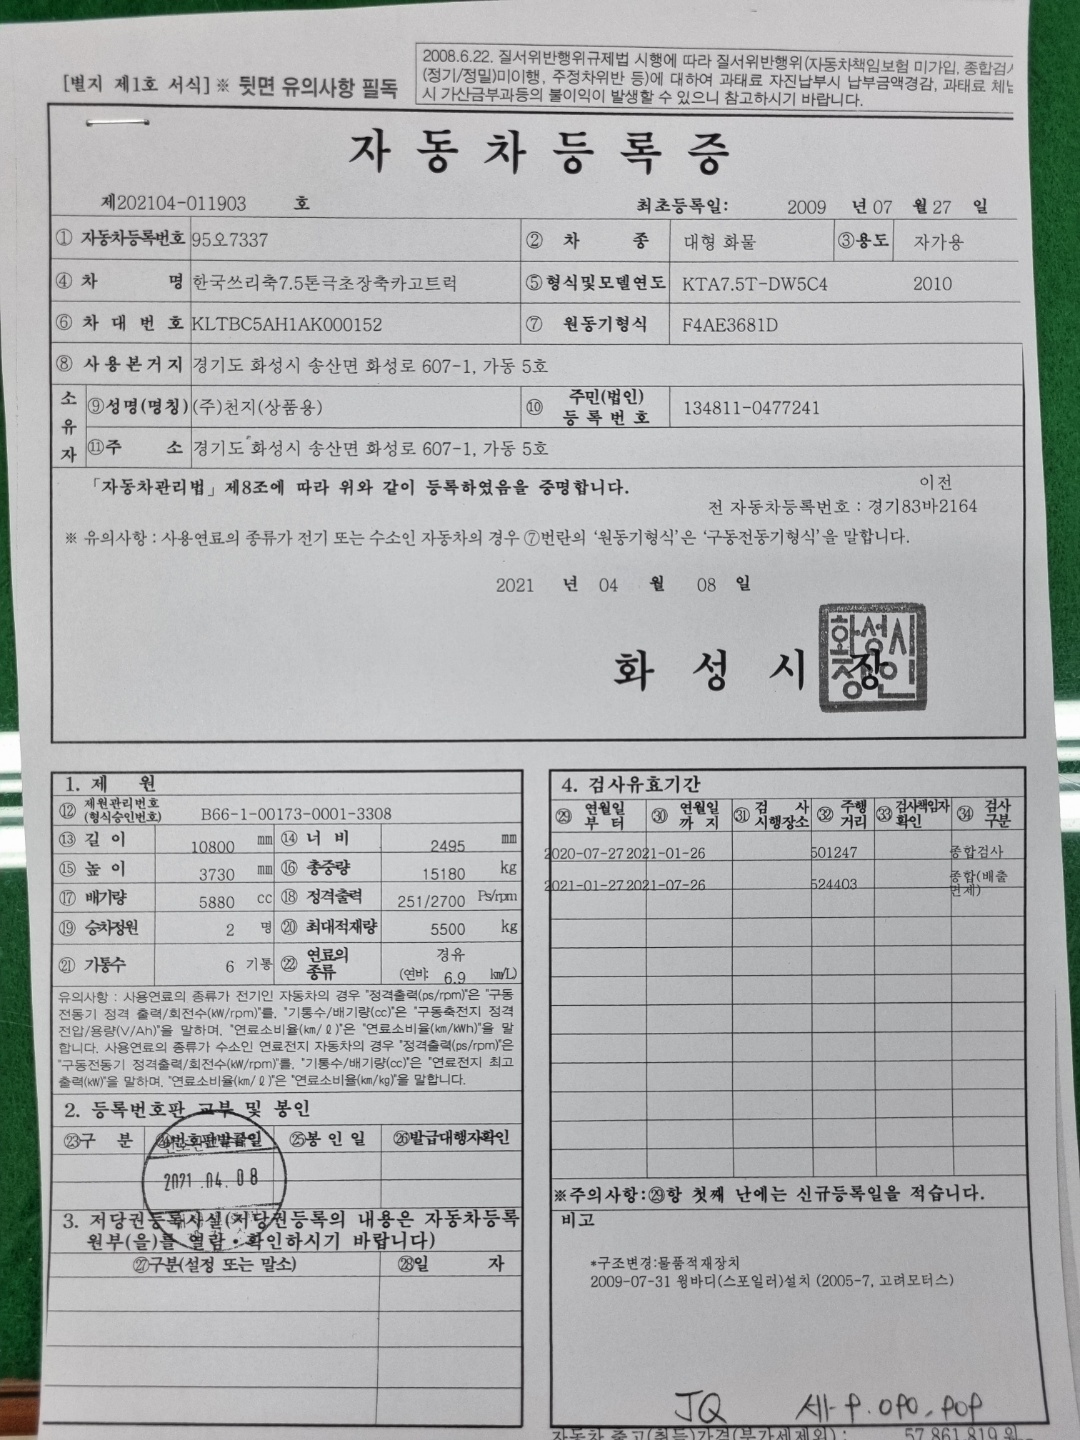 [별지 제1호 서식] ※ 뒷면 유의사항 필독
2008.6.22. 질서위반행위규제법 시행에 따라 질서위반행위(자동차책임보험 미가입, 종합검사
(정기/정밀)미이행, 주정차위반 등)에 대하여 과태료 자진납부시 납부금액경감, 과태료 체납
시 가산금부과등의 불이익이 발생할 수 있으니 참고하시기 바랍니다.
자동차등록증
제202104-011903 호 최초등록일: 2009 년 07 월 27 일
① 자동차등록번호 95오7337 ② 차 종 대형 화물 ③용도 자가용
④ 차 명 한국쓰리축7.5톤극초장축카고트럭 ⑤ 형식및모델연도 KTA7.5T-DW5C4 2010
⑥ 차대번호 KLTBC5AH1AK000152 ⑦ 원동기형식 F4AE3681D
⑧ 사용본거지 경기도 화성시 송산면 화성로 607-1, 가동 5호
소유자 ⑨성명(명칭) (주)천지(상품용) ⑩ 주민(법인)등록번호 134811-0477241
⑪주 소 경기도 화성시 송산면 화성로 607-1, 가동 5호
「자동차관리법」 제8조에 따라 위와 같이 등록하였음을 증명합니다. 이전
전 자동차등록번호 : 경기83바2164
※ 유의사항 : 사용연료의 종류가 전기 또는 수소인 자동차의 경우 ⑦번란의 '원동기형식'은 '구동전동기형식'을 말합니다.
2021 년 04 월 08 일
화성시장
화성시장인
1. 제 원
⑫ 제원관리번호(형식승인번호) B66-1-00173-0001-3308
⑬ 길이 10800 mm ⑭ 너비 2495 mm
⑮ 높이 3730 mm ⑯ 총중량 15180 kg
⑰ 배기량 5880 cc ⑱ 정격출력 251/2700 Ps/rpm
⑲ 승차정원 2 명 ⑳ 최대적재량 5500 kg
㉑ 기통수 6 기통 ㉒ 연료의 종류 경유 (연비: 6.9 km/L)
유의사항 : 사용연료의 종류가 전기인 자동차의 경우 "정격출력(ps/rpm)"은 "구동
전동기 정격 출력/회전수(kW/rpm)"를, "기통수/배기량(cc)"은 "구동축전지 정격
전압/용량(V/Ah)"을 말하며, "연료소비율(km/ℓ)"은 "연료소비율(km/kWh)"을 말
합니다. 사용연료의 종류가 수소인 연료전지 자동차의 경우 "정격출력(ps/rpm)"은
"구동전동기 정격출력/회전수(kW/rpm)"를, "기통수/배기량(cc)"은 "연료전지 최고
출력(kW)"을 말하며, "연료소비율(km/ℓ)"은 "연료소비율(km/kg)"을 말합니다.
2. 등록번호판 교부 및 봉인
㉓구 분 ㉔번호판발급일 ㉕봉인일 ㉖발급대행자확인
2021.04.08
3. 저당권등록사실(저당권등록의 내용은 자동차등록
원부(을)를 열람·확인하시기 바랍니다)
㉗구분(설정 또는 말소) ㉘일 자
4. 검사유효기간
㉙ 연월일 부터 ㉚ 연월일 까지 ㉛ 검사 시행장소 ㉜ 주행거리 ㉝ 검사책임자확인 ㉞ 검사구분
2020-07-27 2021-01-26 501247 종합검사
2021-01-27 2021-07-26 524403 종합(배출면제)
※주의사항:㉙항 첫째 난에는 신규등록일을 적습니다.
비고
*구조변경:물품적재장치
2009-07-31 윙바디(스포일러)설치 (2005-7, 고려모터스)
JQ
자동차 출고(취득)가격(부가세제외) : 57,861,819 원